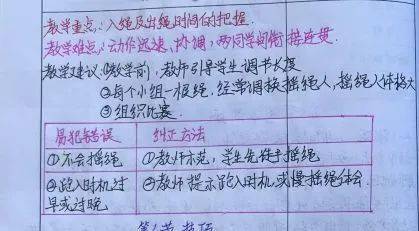 教学重点：入绳及出绳时间的把握.
教学难点：动作迅速、协调，两同学间衔接连贯.
教学建议：①教学前，教师引导学生调节长度
②每个小组一根绳，经常调换摇绳人，摇绳人体格大
③组织比赛.
易犯错误 纠正方法
①不会摇绳 ①教师示范，学生先徒手摇绳
②跑入时机过早或过晚 ②教师提示跑入时机或慢摇绳体会.